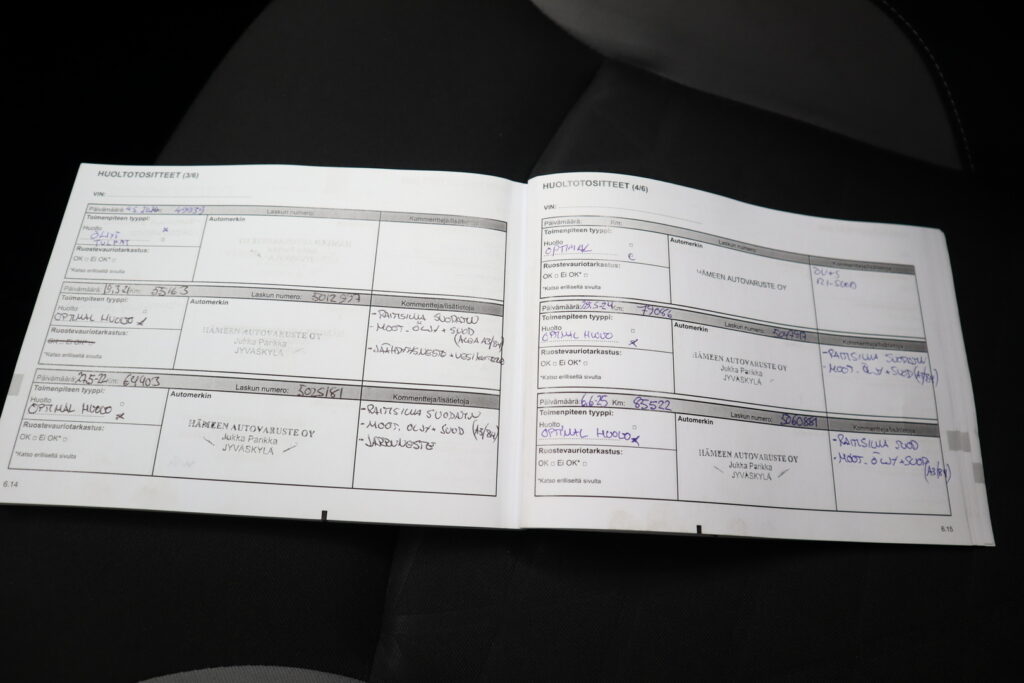 HUOLTOTOSITTEET (3/6)
VIN:
Päivämäärä: Laskun numero: Kommentteja/lisätietoja
Toimenpiteen tyyppi: Automerkin
Huolto
ÖLJY
Ruostevauriotarkastus: HÄMEEN AUTOVARUSTE OY
OK □ Ei OK* □
*Katso erilliseltä sivulta
Päivämäärä 19.3.21 Km: 55163 Laskun numero: 5012977 Kommentteja/lisätietoja
Toimenpiteen tyyppi: Automerkin
Huolto
OPTIMAL HUOLTO
Ruostevauriotarkastus:
OK □ Ei OK* □
*Katso erilliseltä sivulta
HÄMEEN AUTOVARUSTE OY
Jukka Parikka
JYVÄSKYLÄ
- RAITISILMA SUODATIN
- MOOT. ÖLJY + SUOD
(ACEA A3/B4)
- JÄÄHDYTYSNESTE
Päivämäärä 22.5-22 Km: 64903 Laskun numero: 5025181 Kommentteja/lisätietoja
Toimenpiteen tyyppi: Automerkin
Huolto
OPTIMAL HUOLTO
Ruostevauriotarkastus:
OK □ Ei OK* □
*Katso erilliseltä sivulta
HÄMEEN AUTOVARUSTE OY
Jukka Parikka
JYVÄSKYLÄ
- RAITISILMA SUODATIN
- MOOT. ÖLJY + SUOD (A3/B4)
- JARRUNESTE
6.14
HUOLTOTOSITTEET (4/6)
VIN:
Päivämäärä: Km: Laskun numero: Kommentteja/lisätietoja
Toimenpiteen tyyppi: Automerkin
Huolto
OPTIMAL
Ruostevauriotarkastus:
OK □ Ei OK* □
*Katso erilliseltä sivulta
HÄMEEN AUTOVARUSTE OY
Päivämäärä: Km: Laskun numero: Kommentteja/lisätietoja
Toimenpiteen tyyppi: Automerkin
Huolto
OPTIMAL HUOLTO
Ruostevauriotarkastus:
OK □ Ei OK* □
*Katso erilliseltä sivulta
HÄMEEN AUTOVARUSTE OY
Jukka Parikka
JYVÄSKYLÄ
- RAITISILMA SUODATIN
- MOOT. ÖLJY + SUOD (A3/B4)
Päivämäärä 6.6.25 Km: 85522 Laskun numero: 5060881 Kommentteja/lisätietoja
Toimenpiteen tyyppi: Automerkin
Huolto
OPTIMAL HUOLTO
Ruostevauriotarkastus:
OK □ Ei OK* □
*Katso erilliseltä sivulta
HÄMEEN AUTOVARUSTE OY
Jukka Parikka
JYVÄSKYLÄ
- RAITISILMA SUOD
- MOOT. ÖLJY + SUOD (A3/B4)
6.15